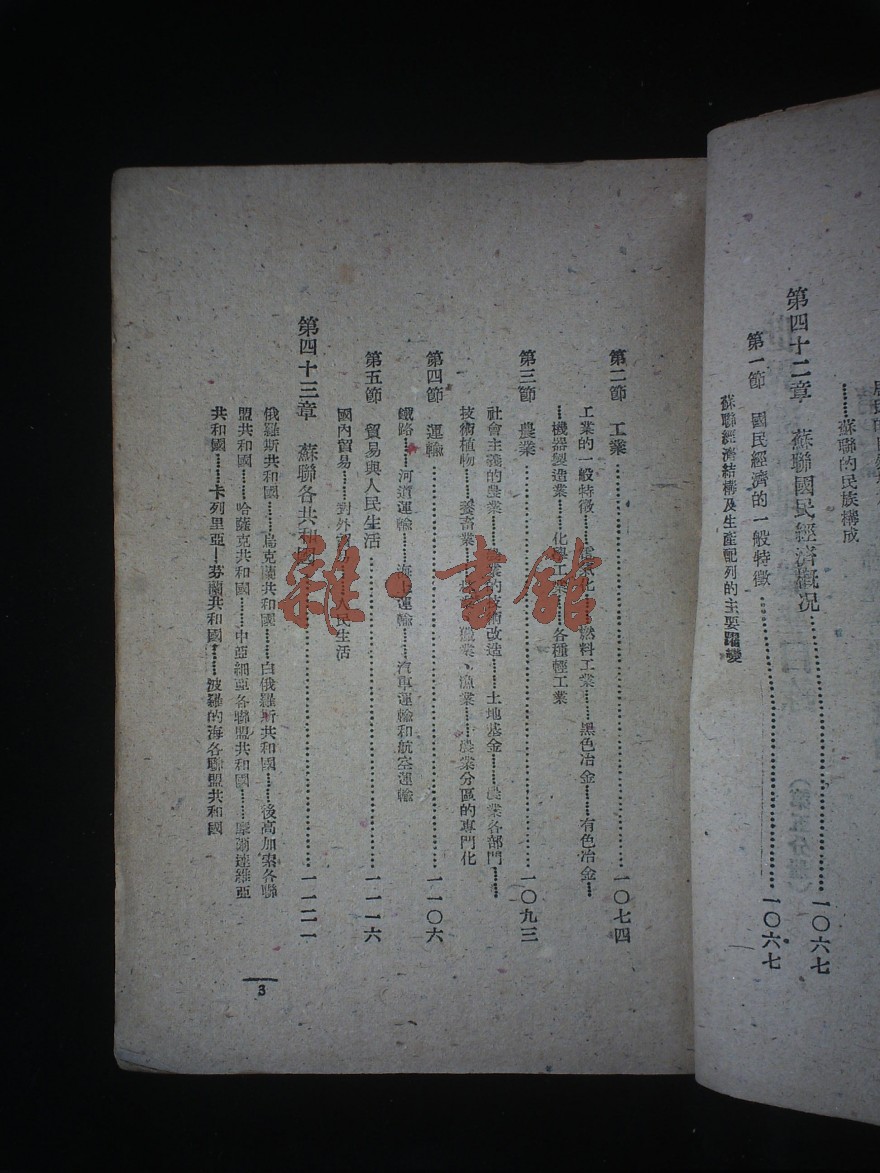 ……蘇聯的民族構成
第四十二章　蘇聯國民經濟概況……一〇六七
第一節　國民經濟的一般特徵……一〇六七
蘇聯經濟結構及生產配列的主要躍變
第二節　工業……一〇七四
工業的一般特徵……電氣化……燃料工業……黑色冶金……有色冶金…
…機器製造業……化學工業……各種輕工業
第三節　農業……一〇九三
社會主義的農業……農業的技術改造……土地基金……農業各部門……
技術植物……養畜業……獵業、漁業……農業分區的專門化
第四節　運輸……一一〇六
鐵路……河道運輸……海上運輸……汽車運輸和航空運輸
第五節　貿易與人民生活……一一一六
國內貿易……對外貿易……人民生活
第四十三章　蘇聯各共和國……一一二一
俄羅斯共和國……烏克蘭共和國……白俄羅斯共和國……後高加索各聯
盟共和國……哈薩克共和國……中亞細亞各聯盟共和國……摩爾達維亞
共和國……卡列里亞—芬蘭共和國……波羅的海各聯盟共和國
3
雜·書館